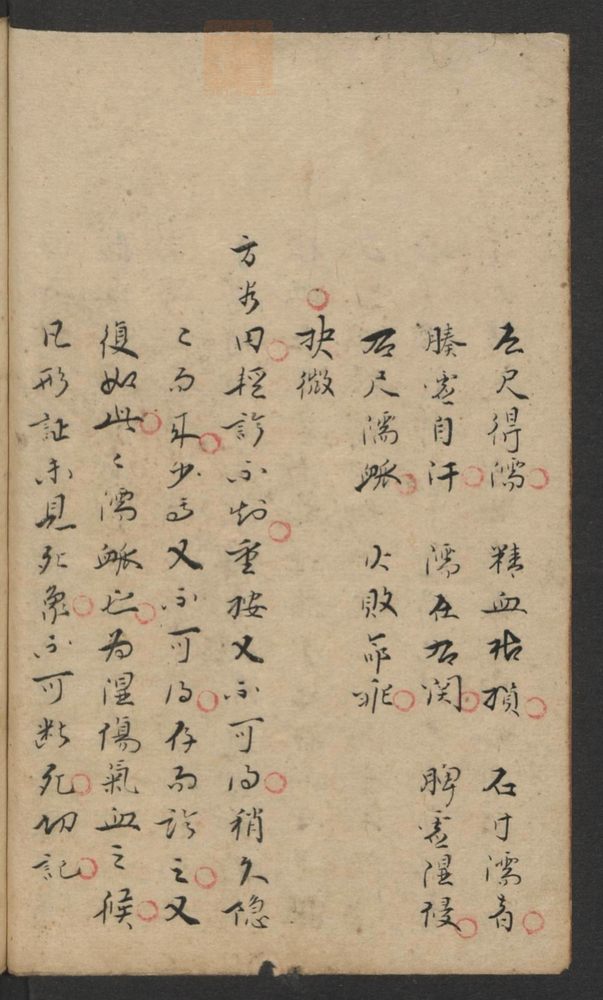 左尺得濡 精血枯損 右寸濡音
腠虛自汗 濡在右関 脾虛濕侵
右尺濡脈 火敗命乖
抉微
方為田輕診不妨重按又不可得稍久隐
〻而来少焉又不可得存而診之又
復如此〻濡脈也为濕傷氣血之候
凡形証未見死象不可断死切記